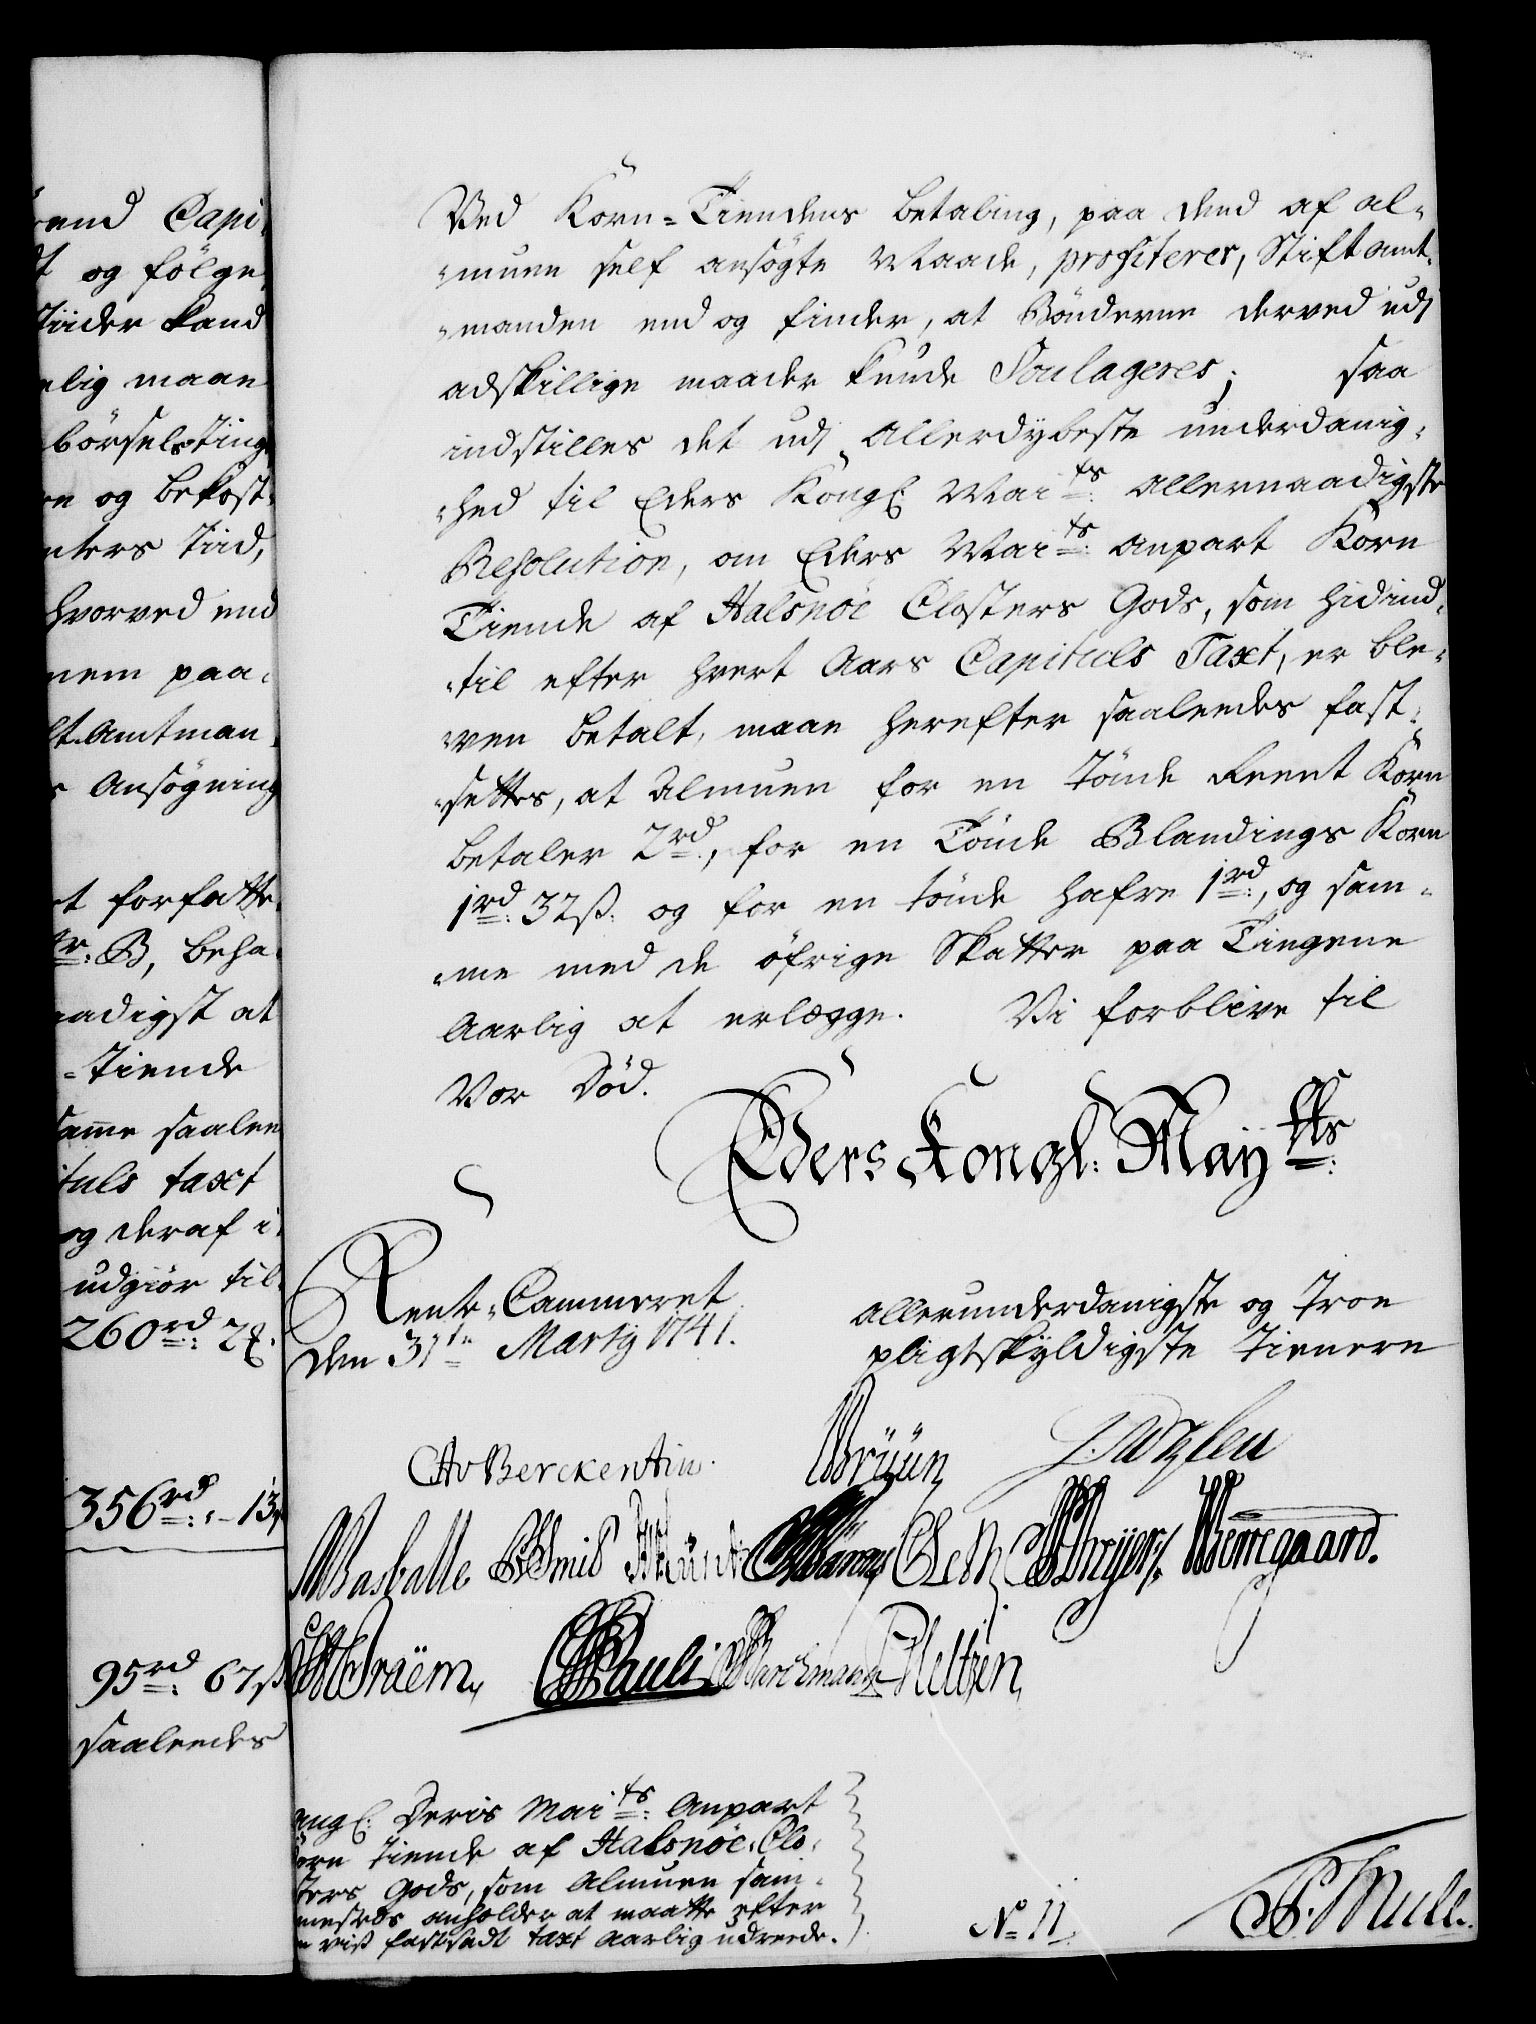 rend Capi-
og følge
Tiider kand
elig maan
børsels Ting
en og bekost-
nters Tiid,
hvorved end
nem paa-
lt Amtman-
Ansøgning
t forfatte-
B, beha-
naadigst at
-Tiende
samme saalee
tuls taxt
og deraf i-
udgiør til-
260 rd: 2
356 rd: - 13
95 rd: 67 ß
saaledes
Ved Korn-Tiendens betaling, paa dend af al-
-muen self ansøgte Maade, profiterer, Stiftamt-
-manden end og finder, at Bønderne derved udj
adskillige maader kunde Soulageres; saa
indstilles det udj Allerdybeste underdanig-
-hed til Eders Kongl: Maits: Allernaadigste
Resolution, om Eders Maits: anpart Korn
Tiende af Halsnöe Closters Gods, som hidind-
-til efter hvert Aars Capituls Taxt, er ble-
-ven betalt, maae herefter saaledes fast-
-settes, at Almuen for en Tönde Reent Korn
betaler 2 rd:, for en Tönde Blandings Korn
1 rd: 32 ß: og for en tönde Hafre 1 rd:, og sam-
-me med de øfrige Skatter paa Tingene
Aarlig at erlægge. Vi forblive til
Vor Død.
Eders Kongl: Maytts:
Rente-Cammeret
den 31te Martij 1741.
allerunderdanigste og Troe
pligtskyldigste Tienere
CAvBerckentin. Brüün
Basballe Leth Dreyer Wennegaard.
Fräem Pauli Neltzen
ongl: Deris Maits: Anpart
Korn Tiende af Halsnöe-Clo-
sters Gods, som Almuen sam-
mesteds anholder at maatte efter
en viß fastsadt taxt Aarlig udreede.
No 11